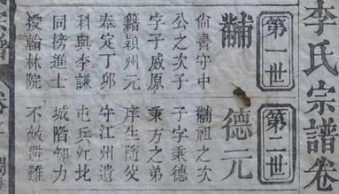 李氏宗譜卷
第一世
黼
尚書守中
公之次子
字子威原
籍潁州元
泰定丁卯
科與李謙
同榜進士
授翰林院
第二世
德元
黼祖之次
子字秉德
秉方之弟
庠生隨父
守江州遺
屯兵於北
城隅知力
不敵避難